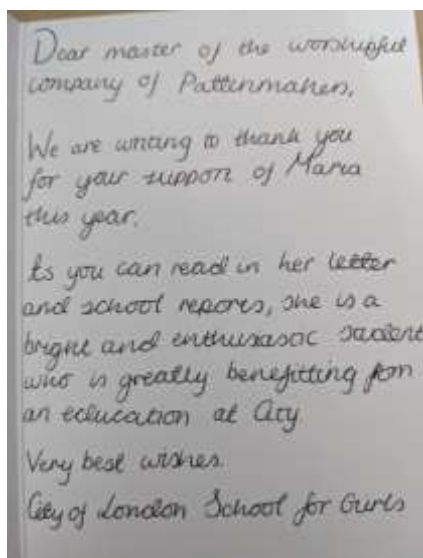 Dear master of the worshipful
company of Pattenmakers,
We are writing to thank you
for your support of Maria
this year.
As you can read in her letter
and school reports, she is a
bright and enthusiastic student
who is greatly benefitting from
an education at City
Very best wishes.
City of London School for Girls